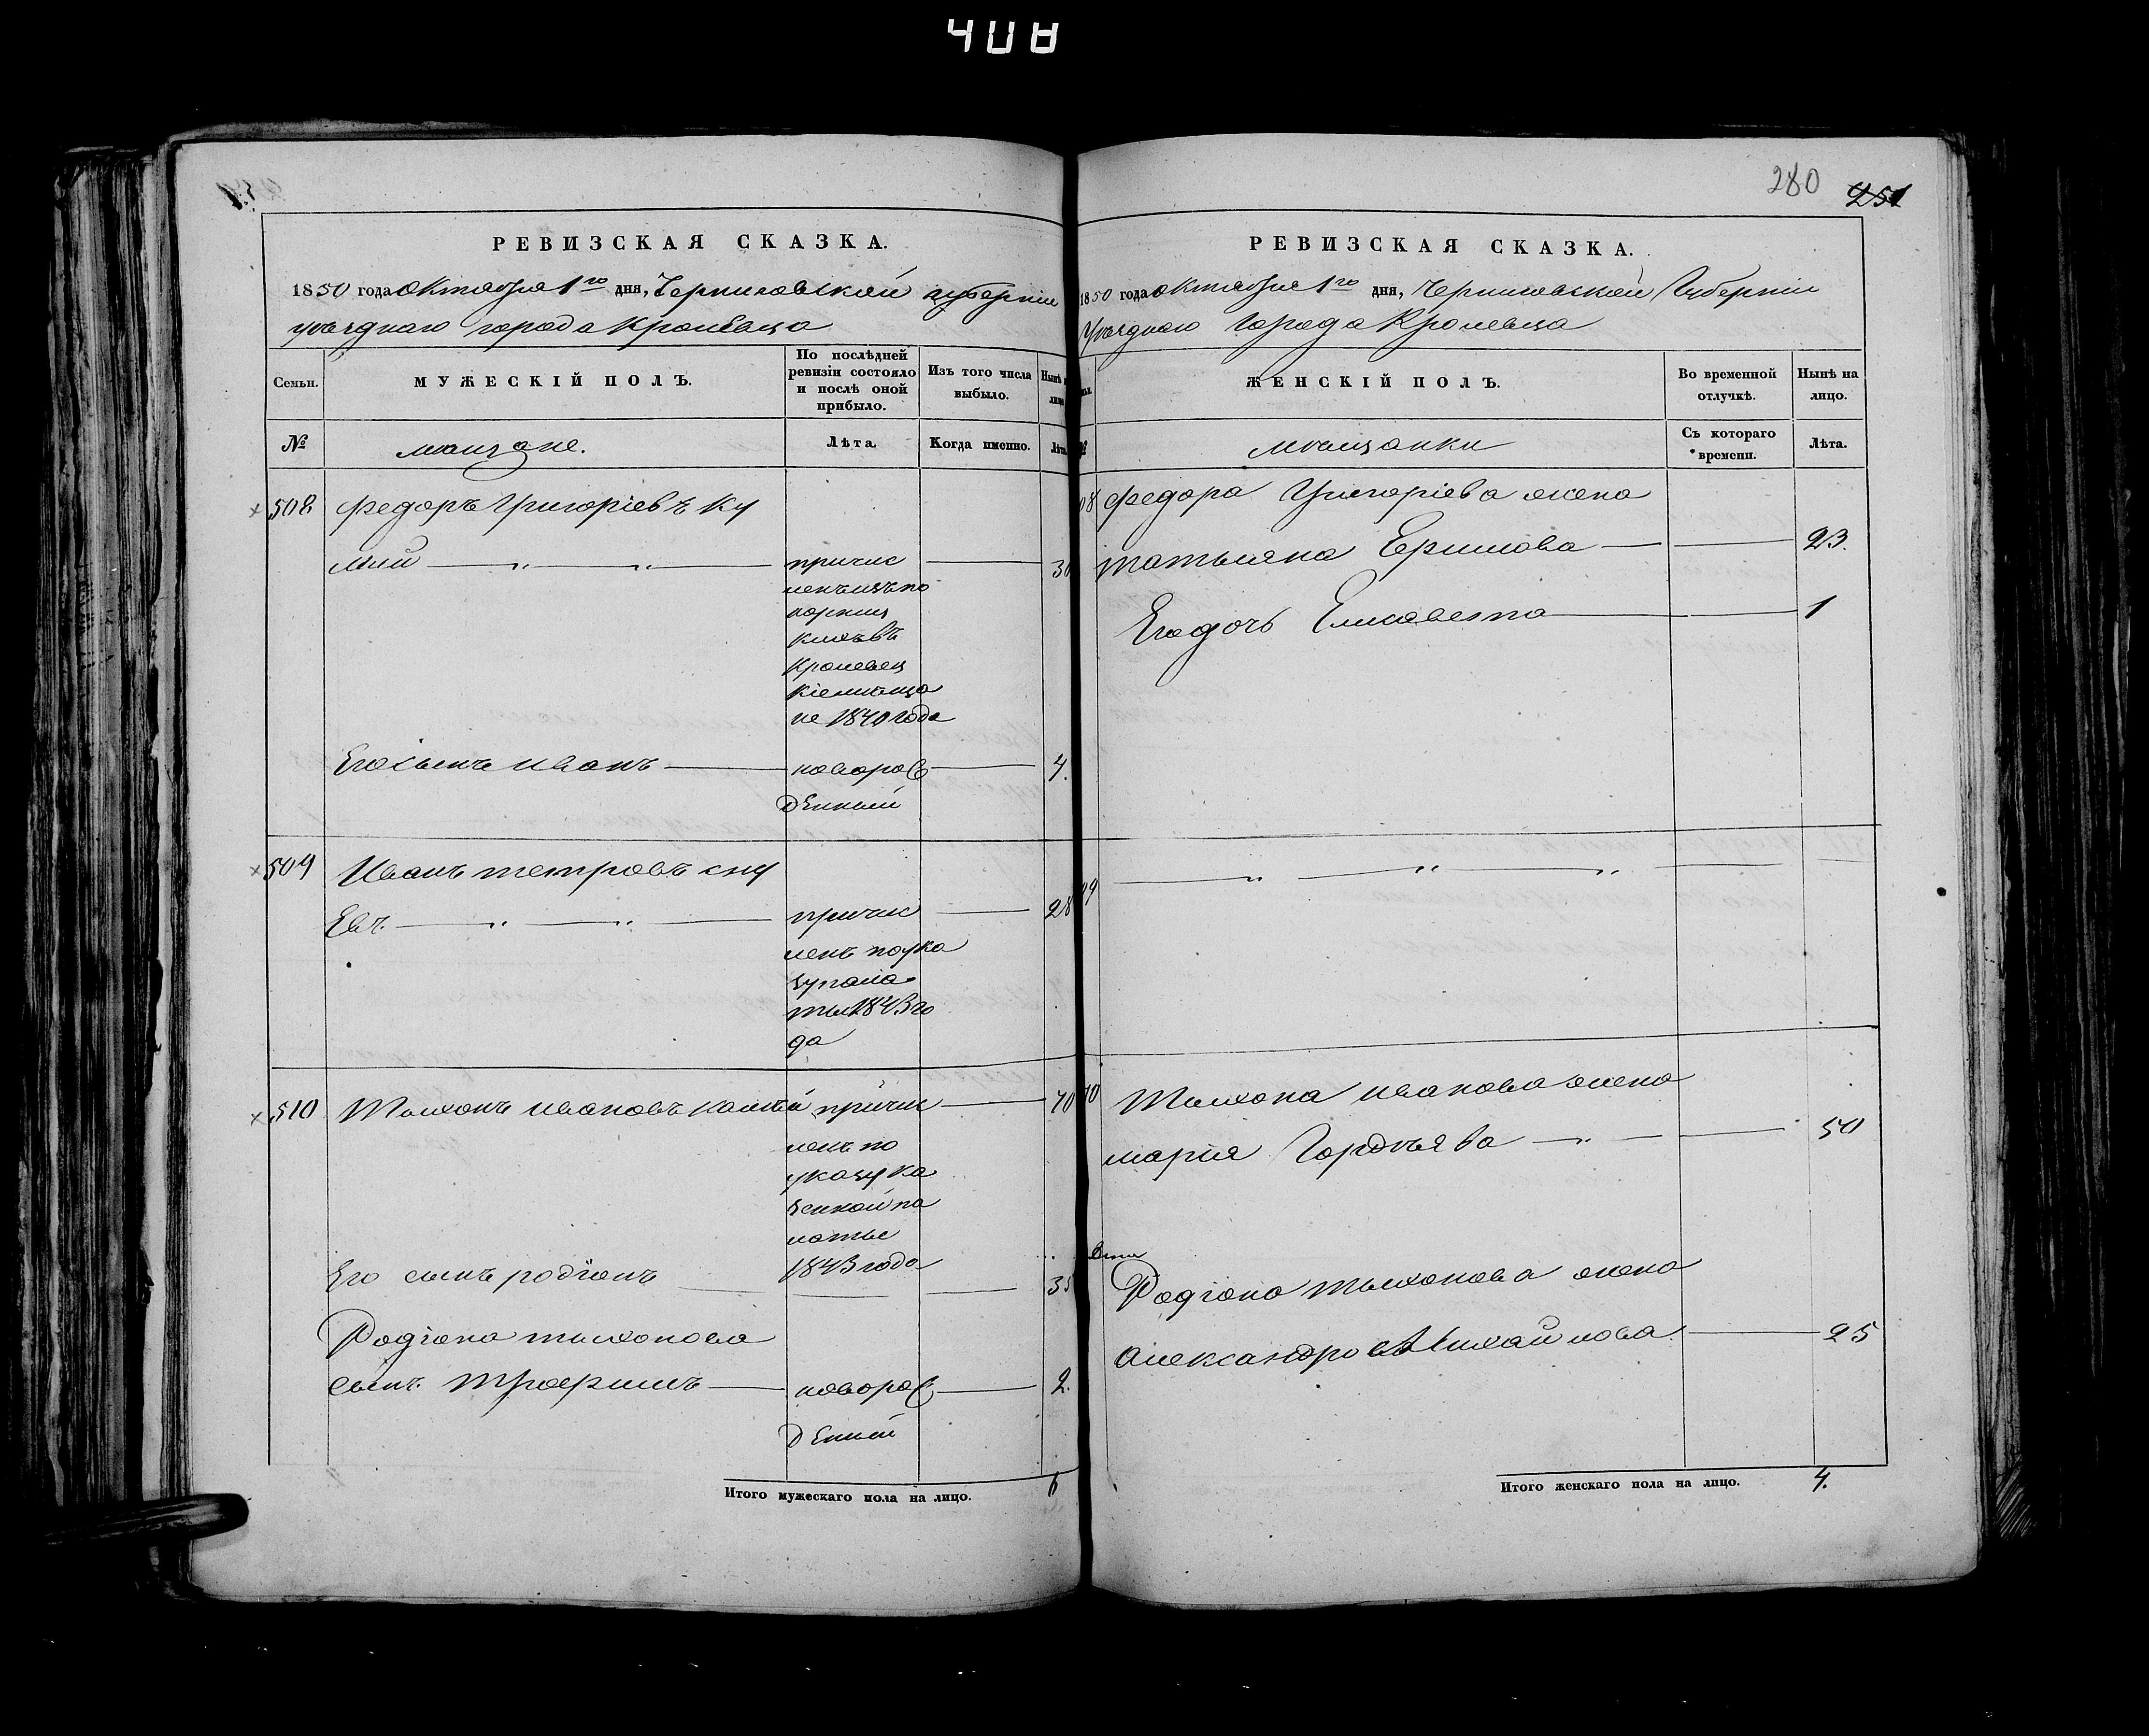 408
280 251
РЕВИЗСКАЯ СКАЗКА.
1850 года Октября 1го дня, Черниговской губернии
уѣзднаго города Кролевца
Семьи.
МУЖЕСКІЙ ПОЛЪ.
По послѣдней ревизіи состояло и послѣ оной прибыло.
Изъ того числа выбыло.
Нынѣ
№
мѣщане.
Лѣта.
Когда именно.
Лѣта
508 Федоръ Григоріевъ Ку
лий
причис
ленъ изъ по
Кролевец
1840 года
30
Его сынъ Иванъ новорож 4.
денный
509 Иванъ Петровъ
евъ. причис 28
ленъ по ука
зу пала
ты 1843 го
да
510 Тихонъ Ивановъ причис 70
ленъ по
указу ка
зенной па
латы
1843 года
Его сынъ Родіонъ 35
Родіона Тихонова
сынъ Трофимъ новорож 2.
денный
Итого мужескаго пола на лицо. 6
РЕВИЗСКАЯ СКАЗКА.
1850 года Октября 1го дня, Черниговской Губерніи
Уѣзднаго Города Кролевца
ЖЕНСКІЙ ПОЛЪ.
Во временной отлучкѣ.
Нынѣ на лицо.
мѣщанки
Съ котораго времени.
Лѣта.
08 Федора Григоріева жена
Татьяна Ефимова 23.
Его дочь Елисавета 1
09
10 Тихона Иванова жена
Марія Гордѣева 50
Родіона Тихонова жена
Александра Михайлова 25
Итого женскаго пола на лицо. 4.